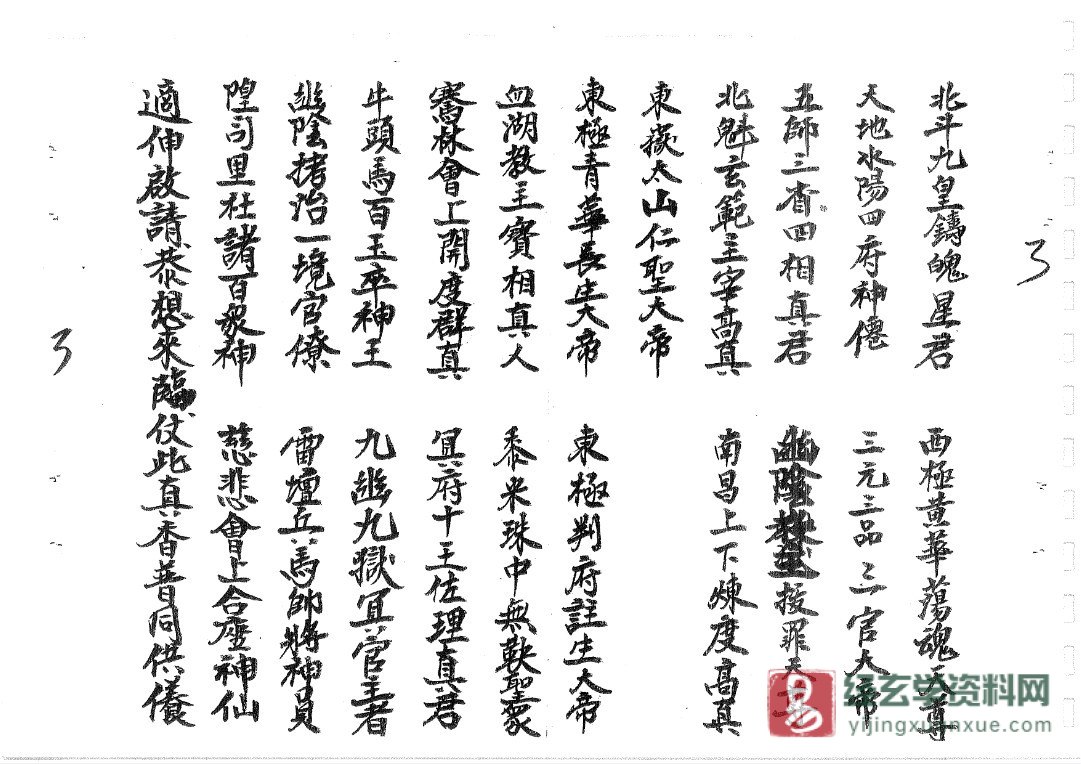 北斗九皇鑄魄星君 西極黃華蕩魂天尊
天地水陽四府神僊 三元三品三官大帝
五師三省四相真君 拔罪天尊
北魁玄範主宰高真 南昌上下煉度高真
東嶽太山仁聖大帝
東極青華長生大帝 東極判府註生大帝
血湖教主寶相真人 黍米珠中無鞅聖衆
騫林會上開度群真 冥府十王佐理真君
牛頭馬百玉卒神王 九幽九獄冥官主者
幽陰拷治一境官僚 雷壇兵馬帥將神員
隍司里社諸百衆神 慈悲會上合座神仙
適伸啟請恭想來臨仗此真香普同供養
3
3
易
经玄学资料网
yijingxuanxue.com